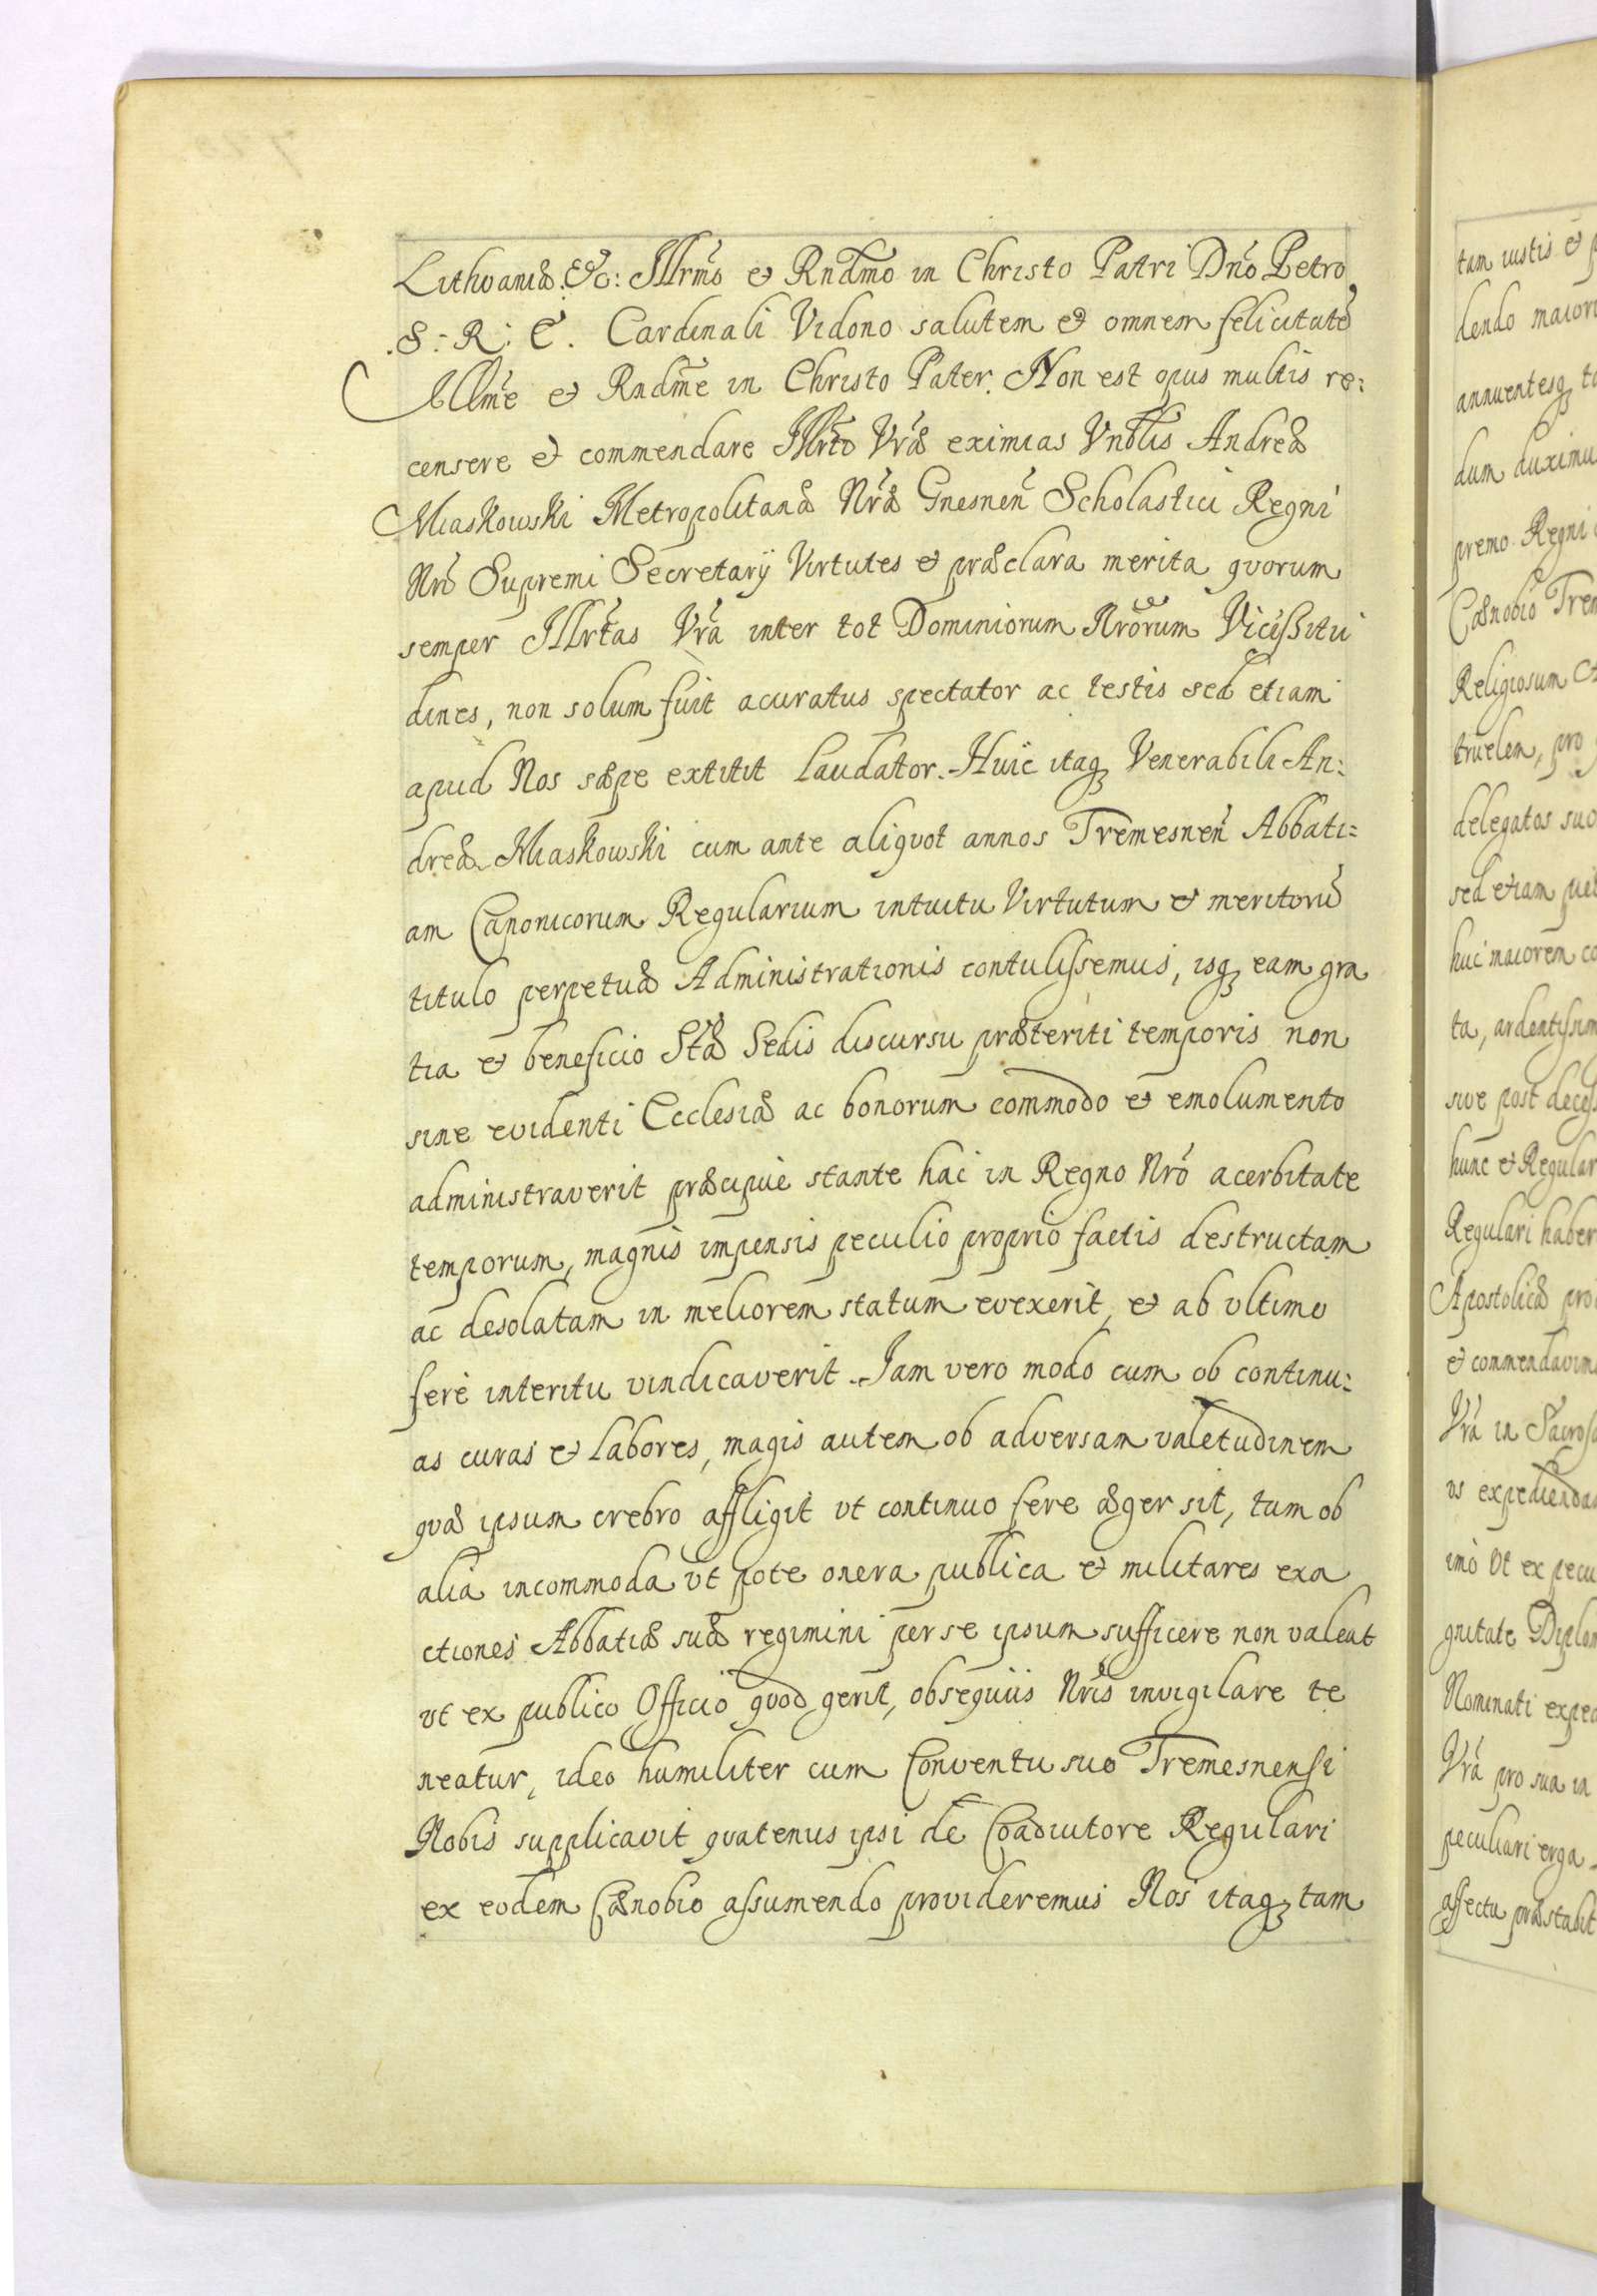 Lithvaniæ. &c: Illrmo et Rndmo in Christo Patri Dno Petro
S: R: E. Cardinali Vidono salutem et omnem felicitate
Illme et Rndme in Christo Pater. Non est opus multis re:
censere et commendare Illrto Vræ eximias Vnblis Andreæ
Miaskowski Metropolitanæ Nræ Gnesnen Scholastici Regni
Nri Supremi Secretarij Virtutes et præclara merita qvorum
semper Illrtas Vra inter tot Dominiorum Nrorum Vicissitu
dines, non solum fuit acuratus spectator ac testis sed etiam
apud Nos sæpe extitit laudator. Huic itaq Venerabili An:
dreæ Miaskowski cum ante aliqvot annos Tremesnen Abbati=
am Canonicorum Regularium intuitu Virtutum et meritoru
titulo perpetuæ Administrationis contulissemus, isq eam gra
tia et beneficio Stæ Sedis discursu præteriti temporis non
sine evidenti Ecclesiæ ac bonorum commodo et emolumento
administraverit præcipuè stante hac in Regno Nro acerbitate
temporum, magnis impensis peculio proprio factis destructam
ac desolatam in meliorem statum evexerit, et ab vltimo
ferè interitu vindicaverit. Jam vero modo cum ob continu:
as curas et labores, magis autem ob adversam valetudinem
qvæ ipsum crebro affligit vt continuo fere æger sit, tum ob
alia incommoda vt pote onera publica et militares exa
ctiones Abbatiæ suæ regimini per se ipsum sufficere non valeat
vt ex publico Officio qvod gerit, obseqviis Nris invigilare te
neatur, ideo humiliter cum Conventu suo Tremesnensi
Nobis supplicavit qvatenus ipsi de Coadiutore Regulari
ex eodem Cænobio assumendo provideremus Nos itaq tam
tam iustis et
dendo maiori
annuentesq
dum duximu
premo Regni
Cænobio Trem
Religiosum
truelem, pro
delegatos suo
sed etiam
huic maiorem co
ta, ardentissim
sive post decess
hunc et Regular
Regulari haber
Apostolicæ pro
et commendavim
Vra in Sacros
us expediendas
imò Vt ex pecu
gnitate Diplom
Nominati exped
Vra pro sua in
peculiari erga
affectu præstabit